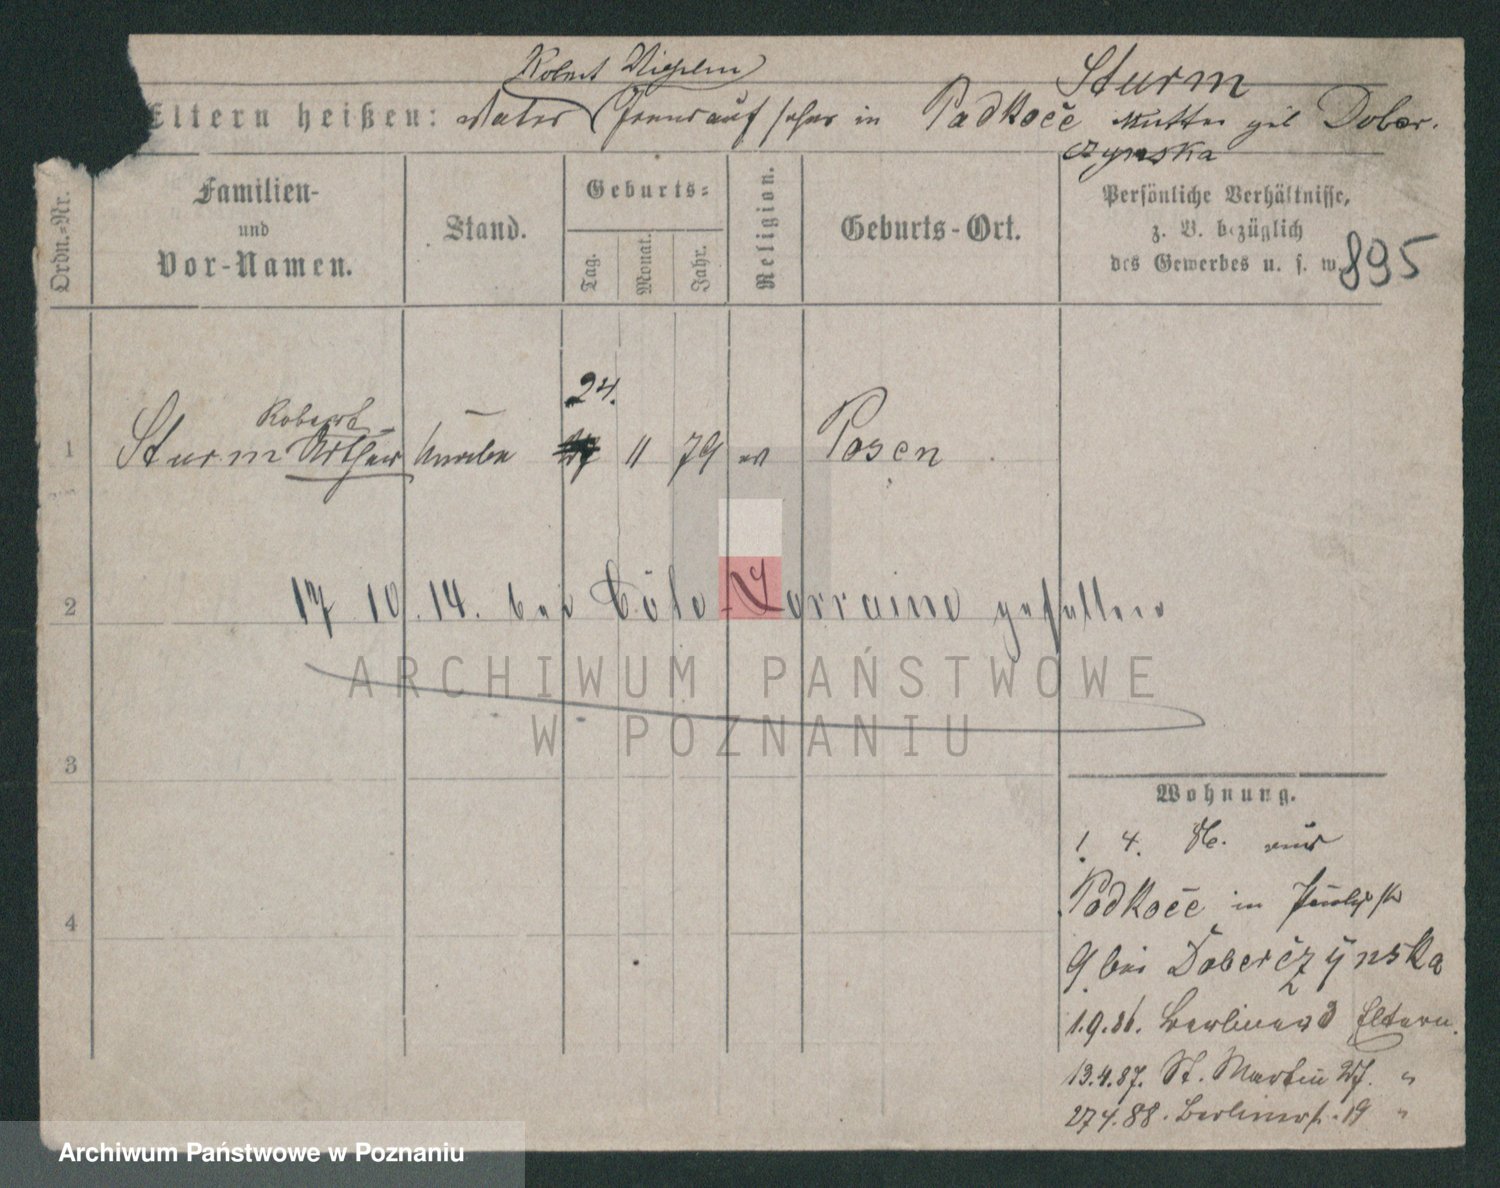 Robert Wilhelm
Sturm
Eltern heißen: Vater in Podkoče Mutter geb Dober-
czynska
Ordn.-Nr.
Familien-
und
Vor-Namen.
Stand.
Geburts-
Tag.
Monat.
Jahr.
Religion.
Geburts-Ort.
Persönliche Verhältnisse,
z. B. bezüglich
des Gewerbes u. s. w.
895
24.
Robert
1 Sturm Arthur Knabe 11 79 ev Posen
2 17 10.14. bei Côte-Lorraine gefallen
ARCHIWUM PAŃSTWOWE
W POZNANIU
3
Wohnung.
1. 4. 86. aus
4 Podkoče in
9 bei Doberczynska
1.9.86. Berliner 3 Eltern.
13.4.87. St. Martin 27. "
27 4.88. Berlinerst. 19 "
Archiwum Państwowe w Poznaniu